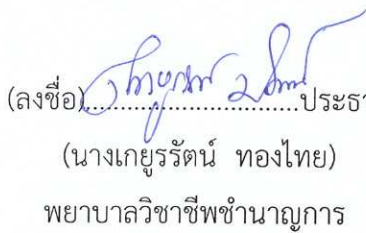 (ลงชื่อ)..............................ประธา
(นางเกยูรรัตน์ ทองไทย)
พยาบาลวิชาชีพชำนาญการ